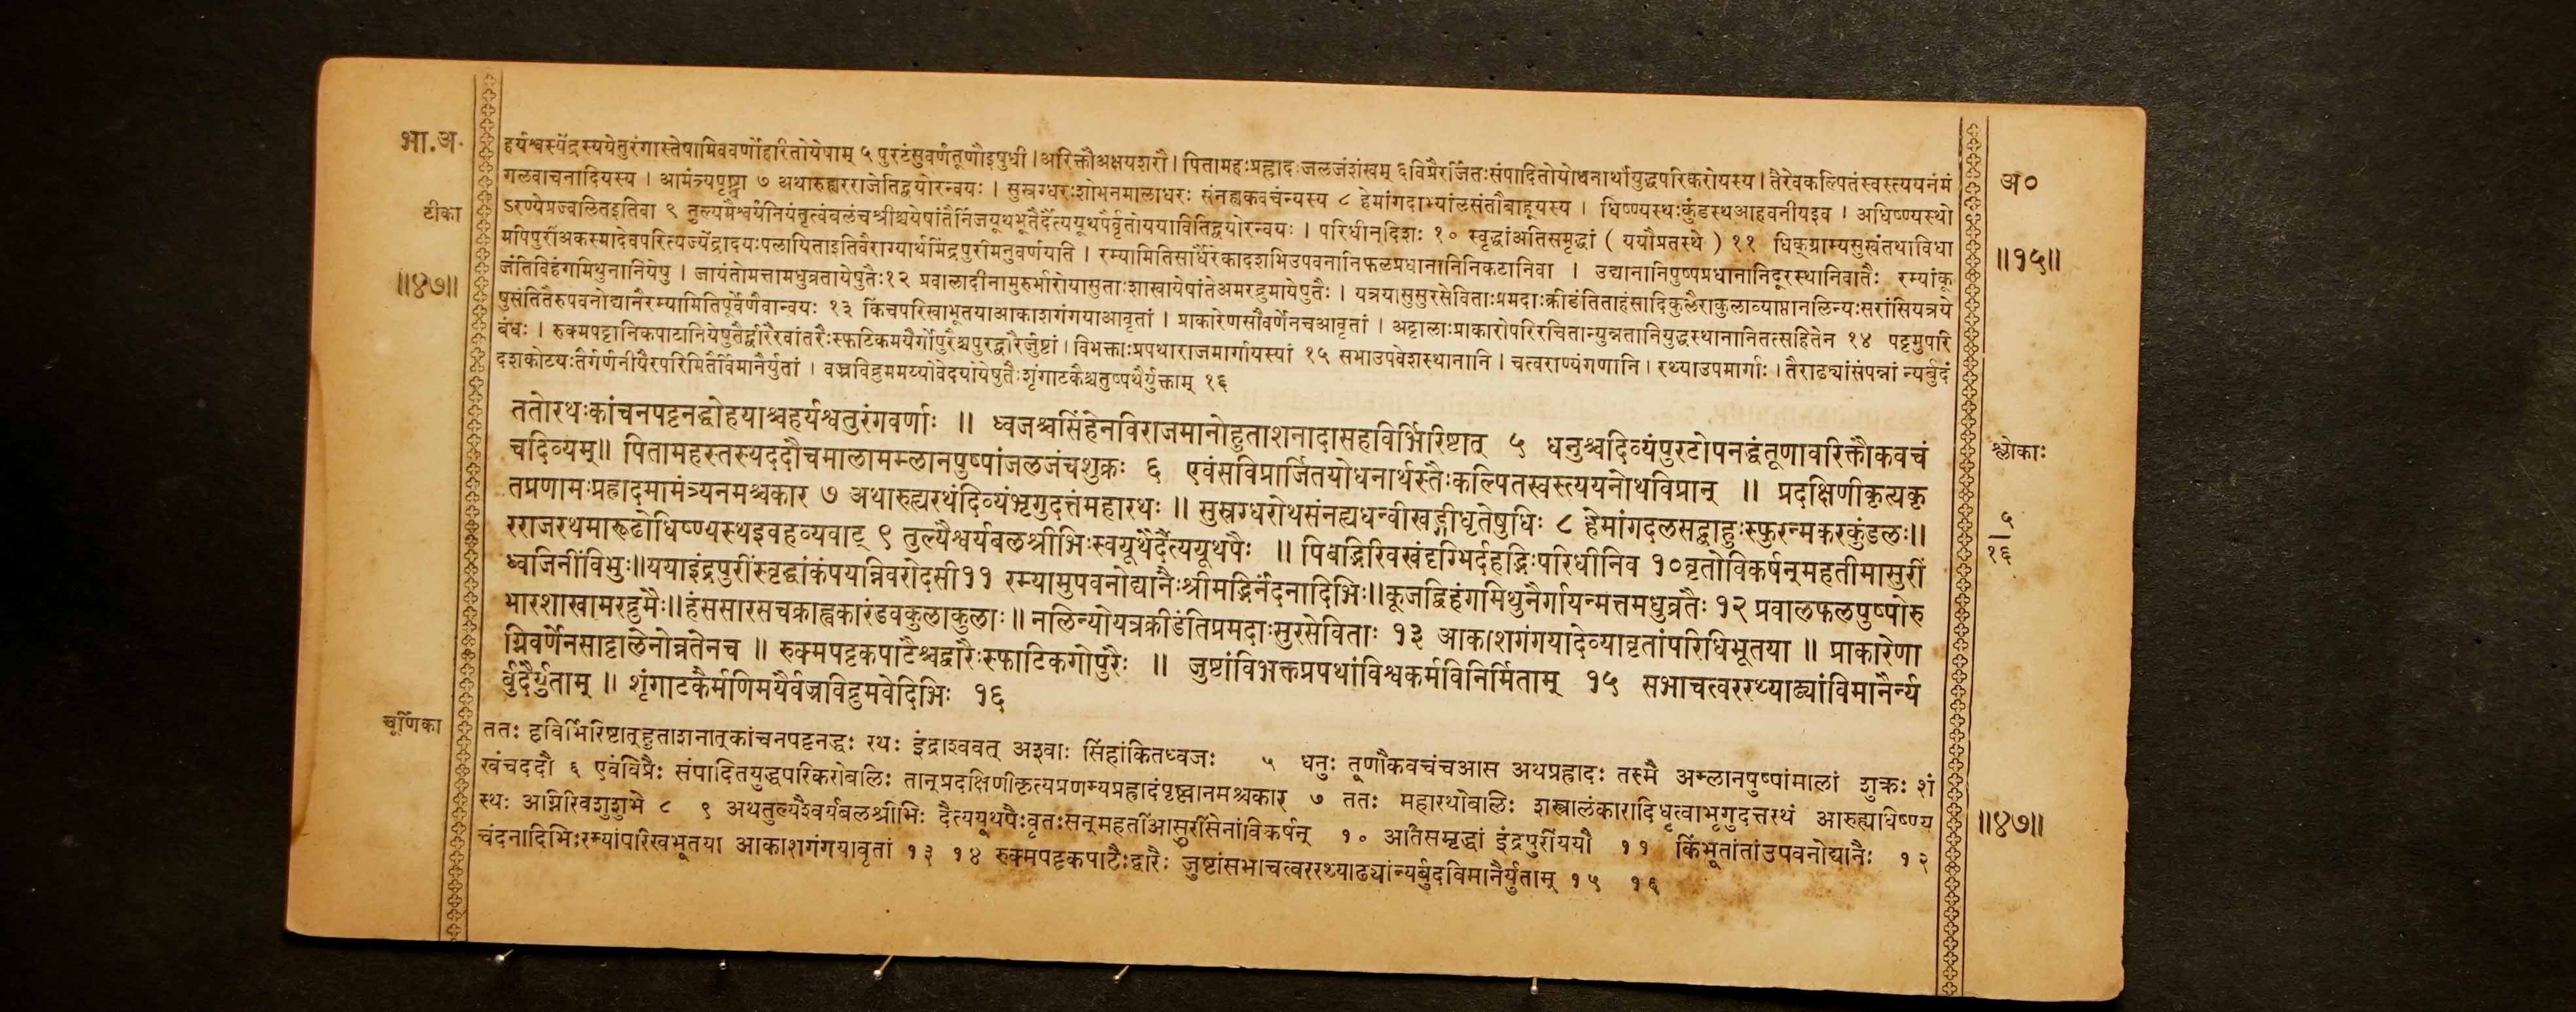 भा.अ.
टीका
॥४७॥
हर्यश्वस्येंद्रस्ययेतुरंगास्तेषामिववर्णोहरितोयेषाम् ५ पुरटंसुवर्णंतूणौइषुधी । अरिक्तौअक्षयशरौ । पितामहःप्रह्रादः जलजंशंखम् ६ विप्रैरर्जितःसंपादितोयोधनार्थोयुद्धपरिकरोयस्य । तैरेवकल्पितंस्वस्त्ययनंमं
गलवाचनादियस्य । आमंत्र्यपृष्ट्वा ७ अथारुह्यरराजेतिद्वयोरन्वयः । सुस्रग्धरःशोभनमालाधरः संनह्यकवचंन्यस्य ८ हेमांगदाभ्यांलसंतौबाहूयस्य । धिष्ण्यस्थःकुंडस्थआहवनीयइव । अधिष्ण्यस्थो
ऽरण्येप्रज्वलितइतिवा ९ तुल्यमैश्वर्यंनियंतृत्वंबलंचश्रीश्चयेषांतैर्निजयूथभूतैर्दैत्ययूथपैर्वृतोययावितिद्वयोरन्वयः । परिधीन्दिशः १० स्वृद्धांअतिसमृद्धां ( ययौप्रतस्थे ) ११ धिक्ग्राम्यसुखंतथाविधा
मपिपुरींअकस्मादेवपरित्यज्येंद्रादयःपलायिताइतिवैराग्यार्थमिंद्रपुरीमनुवर्णयति । रम्यामितिसार्धैरेकादशभिःउपवनानिफलप्रधानानिनिकटानिवा । उद्यानानिपुष्पप्रधानानिदूरस्थानिवातैः रम्यांकू
जंतिविहंगमिथुनानियेषु । जायंतोमत्तामधुव्रतायेषुतैः१२ प्रवालादीनामुरुर्भारोयासुताःशाखायेषांतेअमरद्रुमायेषुतैः । यत्रयासुसुरसेविताःप्रमदाःक्रीडंतिताहंसादिकुलैराकुलाव्याप्तानलिन्यःसरांसियत्रये
षुसंतितैरुपवनोद्यानैरम्यामितिपूर्वेणैवान्वयः १३ किंचपरिखाभूतयाआकाशगंगयाआवृतां । प्राकारेणसौवर्णेनचआवृतां । अट्टालाःप्राकारोपरिरचितान्युन्नतानियुद्धस्थानानितत्सहितेन १४ पट्टमुपरि
बंधः । रुक्मपट्टानिकपाटानियेषुतैर्द्वारैरवांतरैःस्फाटिकमयैर्गोपुरैश्चपुरद्वारैर्जुष्टां । विभक्ताःप्रपथाराजमार्गायस्यां १५ सभाउपवेशस्थानानि । चत्वराण्यंगणानि । रथ्याउपमार्गाः । तैराढ्यांसंपन्नां न्यर्बुदं
दशकोटयःतैर्गणनीयैरपरिमितैर्विमानैर्युतां । वज्रविद्रुममय्योवेदयोयेषुतैःशृंगाटकैश्चतुष्पथैर्युक्ताम् १६
ततोरथःकांचनपट्टनद्धोहयाश्चहर्यश्वतुरंगवर्णाः ॥ ध्वजश्चसिंहेनविराजमानोहुताशनादासहविर्भिरिष्टात् ५ धनुश्चदिव्यंपुरटोपनद्धंतूणावरिक्तौकवचं
चदिव्यम्॥ पितामहस्तस्यददौचमालामम्लानपुष्पांजलजंचशुक्रः ६ एवंसविप्रार्जितयोधनार्थस्तैःकल्पितस्वस्त्ययनोथविप्रान् ॥ प्रदक्षिणीकृत्यकृ
तप्रणामःप्रह्रादमामंत्र्यनमश्चकार ७ अथारुह्यरथंदिव्यंभृगुदत्तंमहारथः ॥ सुस्रग्धरोथसंनह्यधन्वीखड्गीधृतेषुधिः ८ हेमांगदलसद्बाहुःस्फुरन्मकरकुंडलः॥
रराजरथमारूढोधिष्ण्यस्थइवहव्यवाट् ९ तुल्यैश्वर्यबलश्रीभिःस्वयूथैर्दैत्ययूथपैः ॥ पिबद्भिरिवखंदृग्भिर्दहद्भिःपरिधीनिव १०वृतोविकर्षन्महतीमासुरीं
ध्वजिनींविभुः॥ययाइंद्रपुरींस्वृद्धांकंपयन्निवरोदसी११ रम्यामुपवनोद्यानैःश्रीमद्भिर्नंदनादिभिः॥कूजद्विहंगमिथुनैर्गायन्मत्तमधुव्रतैः १२ प्रवालफलपुष्पोरु
भारशाखामरद्रुमैः॥हंससारसचक्राह्वकारंडवकुलाकुलाः ॥ नलिन्योयत्रक्रीडंतिप्रमदाःसुरसेविताः १३ आकाशगंगयादेव्यावृतांपरिधिभूतया ॥ प्राकारेणा
ग्निवर्णेनसाट्टालेनोन्नतेनच ॥ रुक्मपट्टकपाटैश्चद्वारैःस्फाटिकगोपुरैः ॥ जुष्टांविभक्तप्रपथांविश्वकर्मविनिर्मिताम् १५ सभाचत्वररथ्याढ्यांविमानैर्न्य
र्बुदैर्युताम् ॥ शृंगाटकैर्मणिमयैर्वज्रविद्रुमवेदिभिः १६
चूर्णिका
ततः हविर्भिरिष्टात्हुताशनात्कांचनपट्टनद्धः रथः इंद्राश्ववत् अश्वाः सिंहांकितध्वजः ५ धनुः तूणौकवचंचआस अथप्रह्रादः तस्मै अम्लानपुष्पांमालां शुक्रः शं
खंचददौ ६ एवंविप्रैः संपादितयुद्धपरिकरोबलिः तान्प्रदक्षिणीकृत्यप्रणम्यप्रह्रादंपृष्ट्वानमश्चकार ७ ततः महारथोबलिः शस्त्रालंकारादिधृत्वाभृगुदत्तरथं आरुह्याधिष्ण्य
स्थः अग्निरिवशुशुभे ८ ९ अथतुल्यैश्वर्यबलश्रीभिः दैत्ययूथपैःवृतःसन्महतींआसुरींसेनांविकर्षन् १० अतिसमृद्धां इंद्रपुरींययौ ११ किंभूतांतांउपवनोद्यानैः १२
चंदनादिभिःरम्यांपरिखभूतया आकाशगंगयावृतां १३ १४ रुक्मपट्टकपाटैःद्वारैः जुष्टांसभाचत्वररथ्याढ्यांन्यर्बुदविमानैर्युताम् १५ १६
अ०
॥१५॥
श्लोकाः
५
१६
॥४७॥